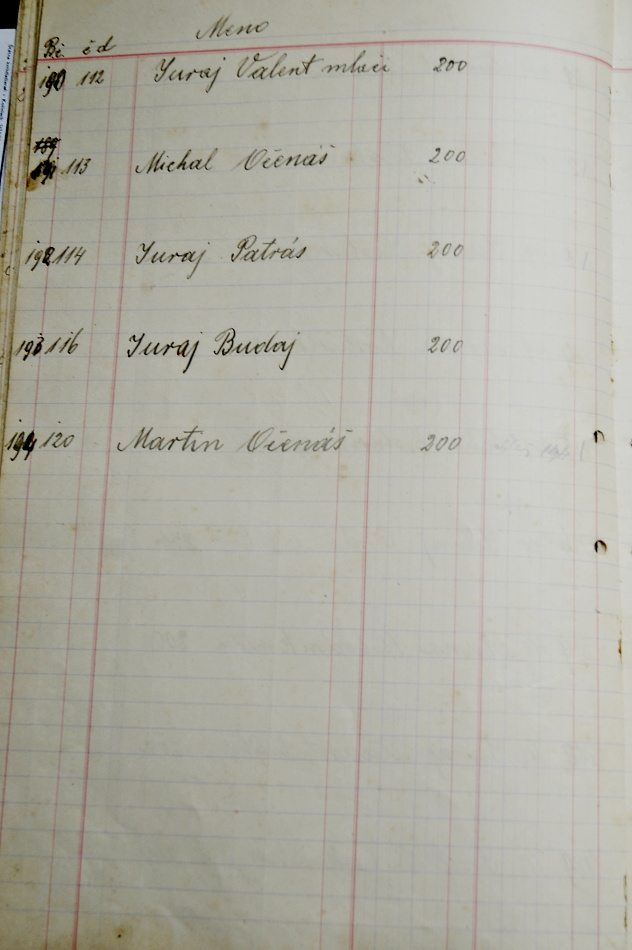 Meno
Bč. čd
190 112 Juraj Valent mlači 200
189
191 113 Michal Očenáš 200
192 114 Juraj Patrás 200
193 116 Juraj Budaj 200
194 120 Martin Očenáš 200